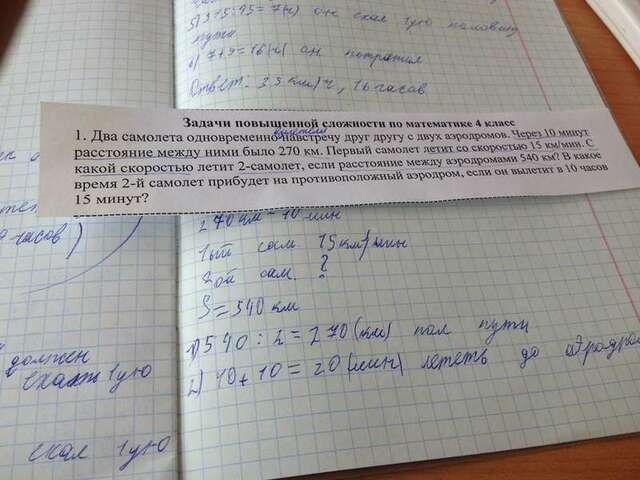 5) 315:45=7(ч) он ехал 1ую половину
пути
6) 7+9=16(ч) он потратил
Ответ. 35 км/ч, 16 часов
Задачи повышенной сложности по математике 4 класс
вылетели
1. Два самолета одновременно навстречу друг другу с двух аэродромов. Через 10 минут
расстояние между ними было 270 км. Первый самолет летит со скоростью 15 км/мин. С
какой скоростью летит 2-самолет, если расстояние между аэродромами 540 км? В какое
время 2-й самолет прибудет на противоположный аэродром, если он вылетит в 10 часов
15 минут?
270 км - 10 мин
1ый сам. 15 км/мин
2ой сам. ?
S=540 км
1) 540:2=270(км) пол пути
2) 10+10=20(мин) лететь до
часов)
должен
ехать 1ую
ехал 1ую